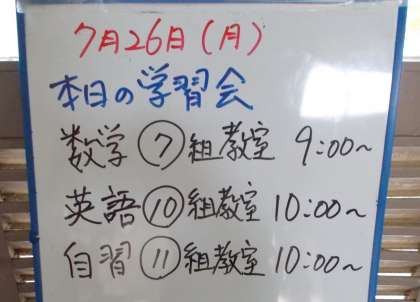 7月26日(月)
本日の学習会
数学 ⑦組教室 9:00~
英語 ⑩組教室 10:00~
自習 ⑪組教室 10:00~